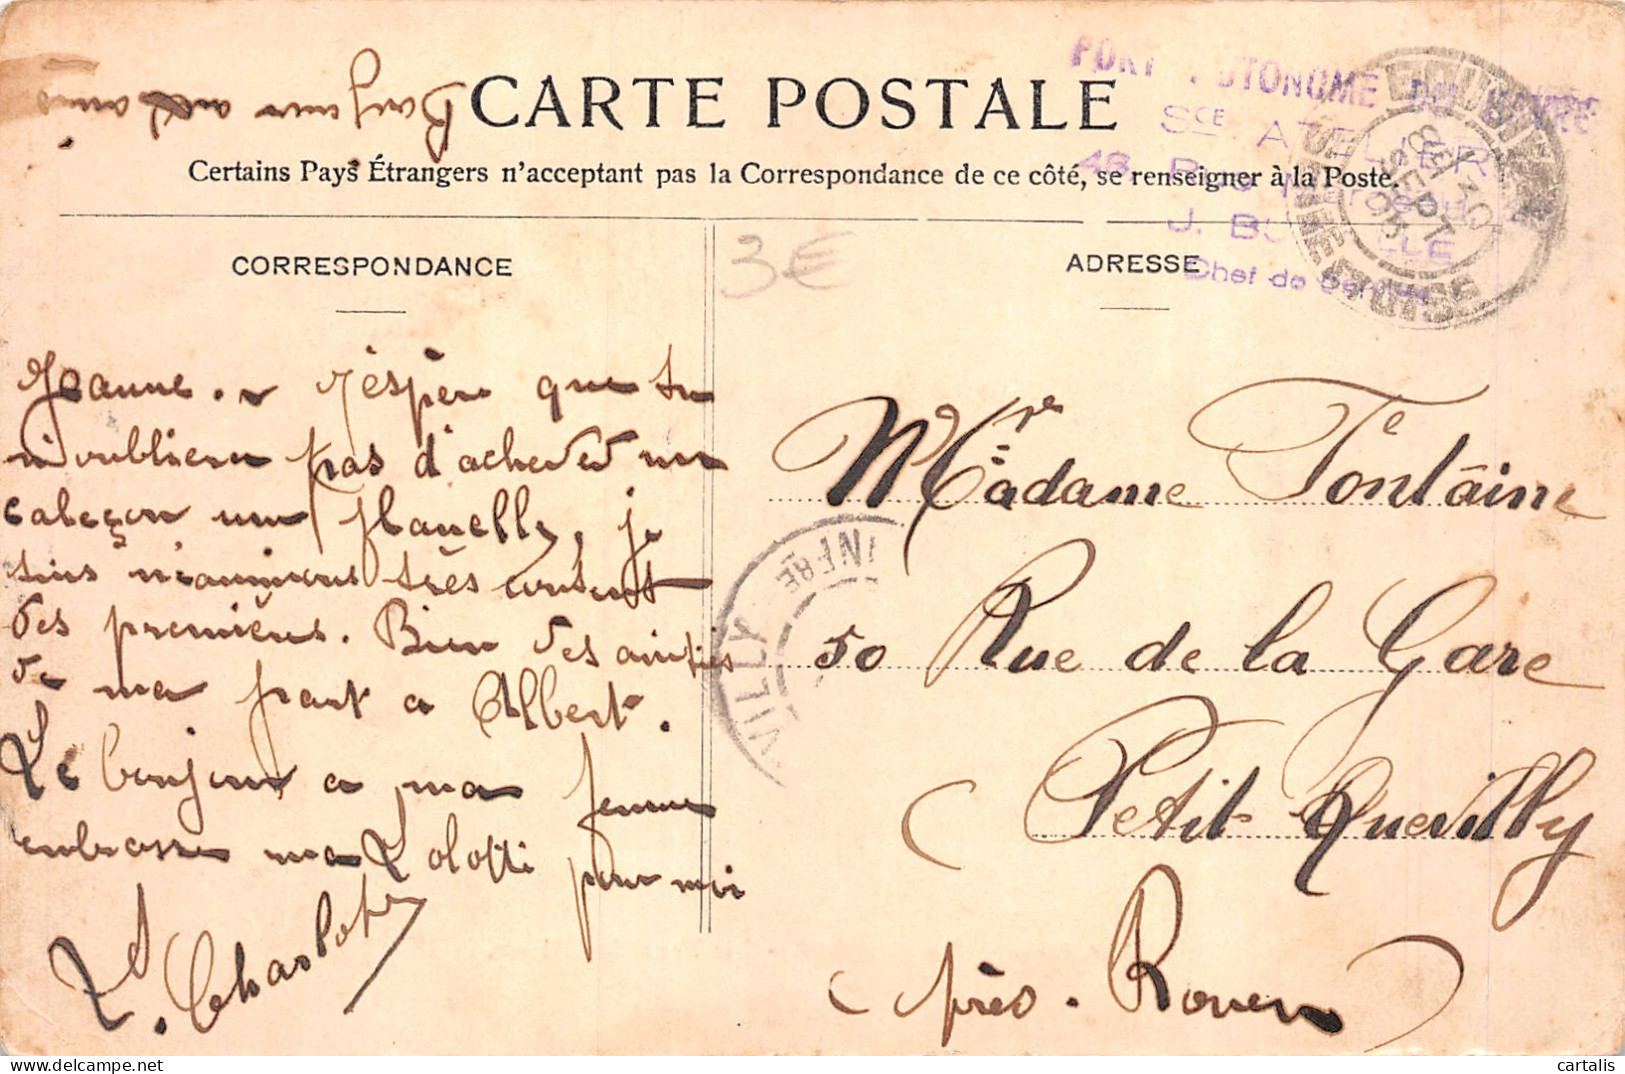 Bonjour aux amis
CARTE POSTALE
Certains Pays Étrangers n'acceptant pas la Correspondance de ce côté, se renseigner à la Poste.
PORT AUTONOME DU HAVRE
Sce ATELIER
J. BU
Chef de Service
SEPT
SEINE-INFRE
3€
CORRESPONDANCE
Jeanne. J'espère que tu
n'oublieras pas d'acheter un
caleçon une flanelle, je
suis néanmoins très content
des premières. Bien des amitiés
de ma part a Albert.
Le bonjour a ma femme
embrasse ma pour moi
Charlot
ADRESSE
Madame Fontaine
50 Rue de la Gare
Petit Quevilly
(près Rouen)
VILLY
INFRE
cartalis